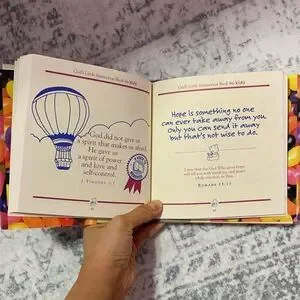 God's Little Instruction Book for Kids
God did not give us
a spirit that makes us afraid.
He gave us
a spirit of power
and love and
self-control.
2 Timothy 1:7
God's Little Instruction Book for Kids
Hope is something no one
can ever take away from you.
Only you can send it away
but that's not wise to do.
I pray that the God Who gives hope
will fill you with much joy and peace
while you trust in Him.
Romans 15:13